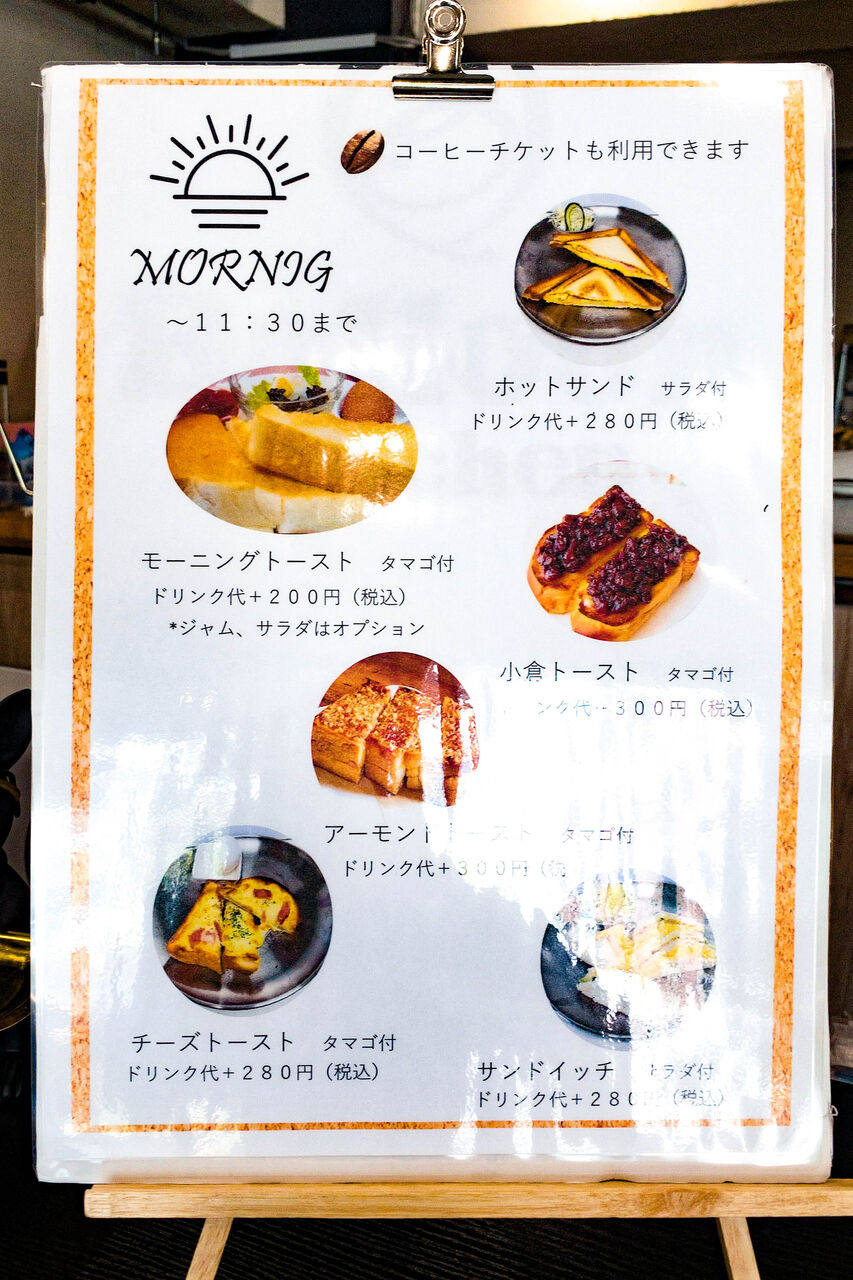 コーヒーチケットも利用できます
MORNIG
～11：30まで
ホットサンド サラダ付
ドリンク代+280円（税込）
モーニングトースト タマゴ付
ドリンク代+200円（税込）
*ジャム、サラダはオプション
小倉トースト タマゴ付
ンク代 300円（税込）
アーモンドトースト タマゴ付
ドリンク代+300円（税
チーズトースト タマゴ付
ドリンク代+280円（税込）
サンドイッチ サラダ付
ドリンク代+280円（税込）